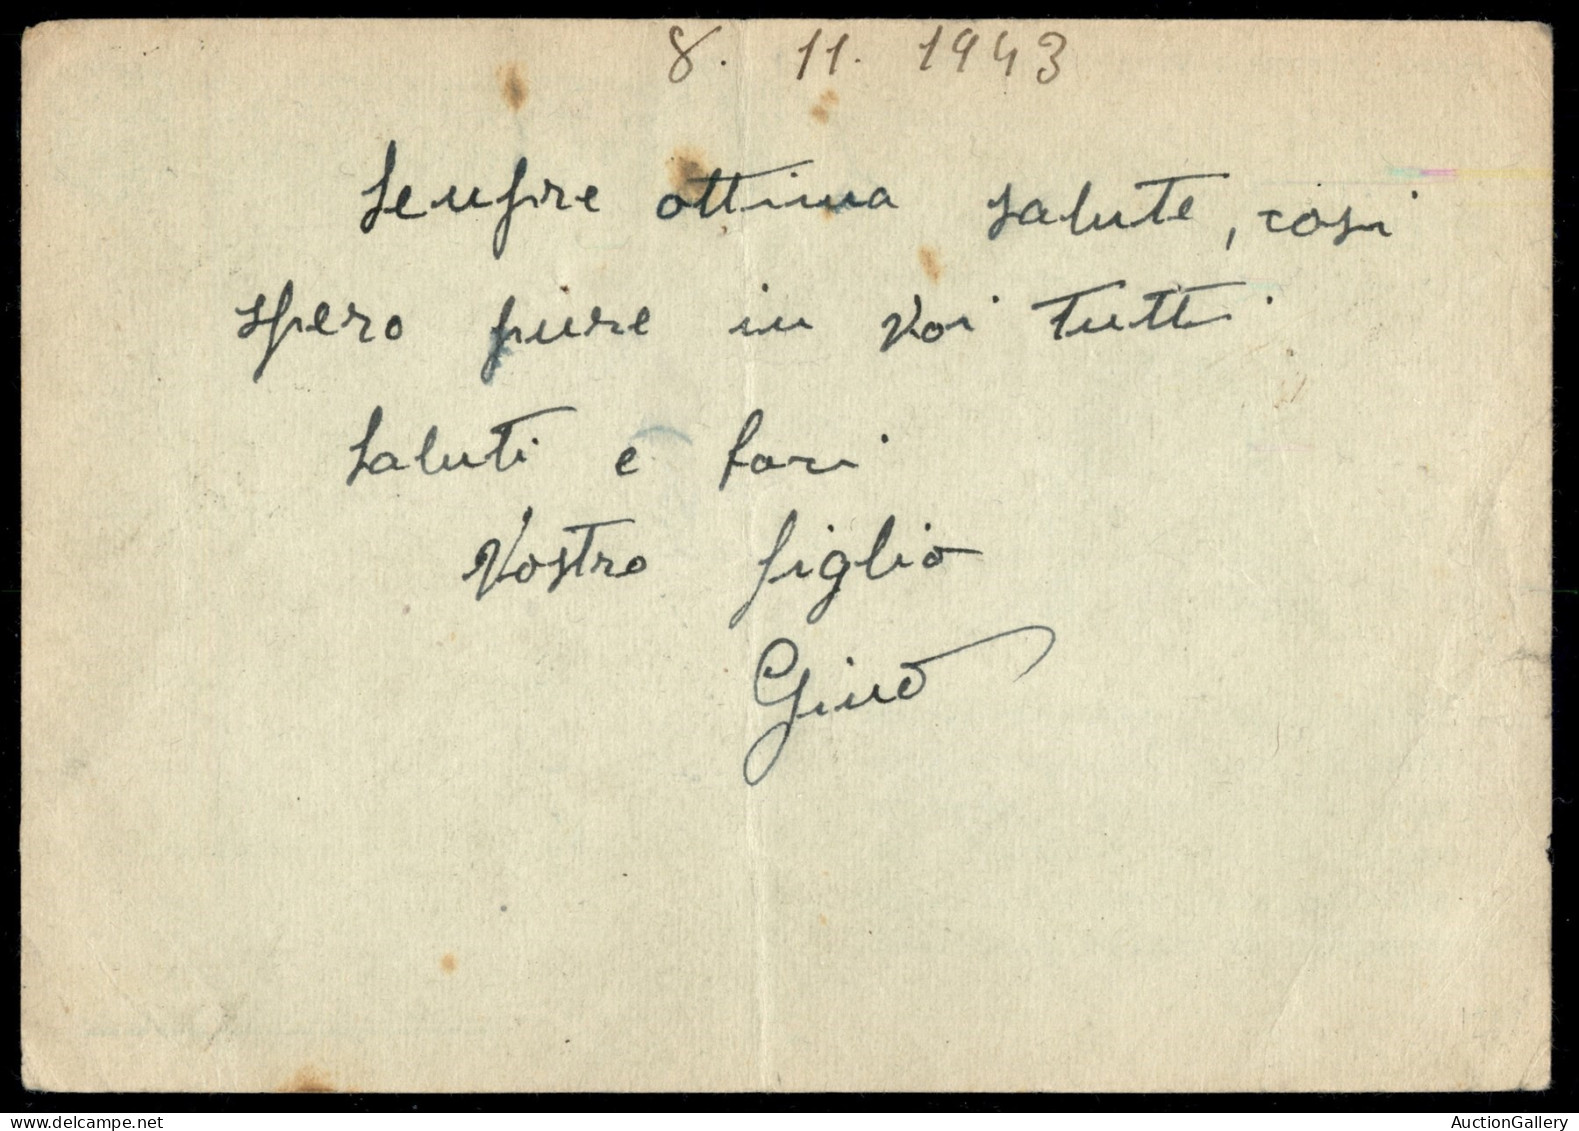 8. 11. 1943
Sempre ottima salute, cosi
spero pure in voi tutti
Saluti e baci
Vostro figlio
Gino
AuctionGallery